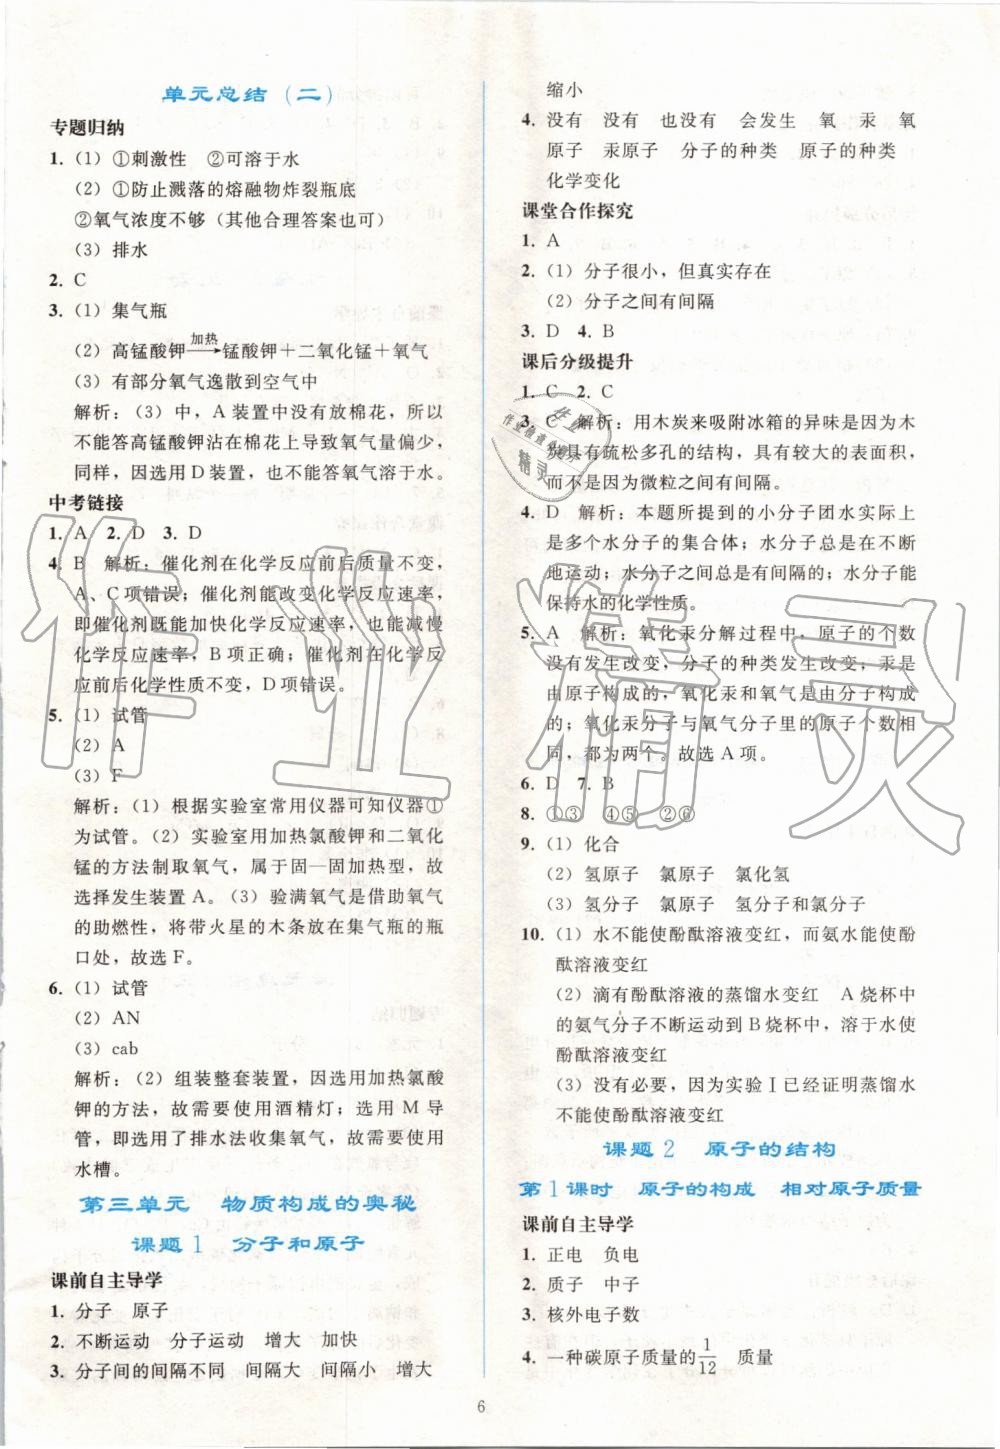 单元总结（二）
专题归纳
1.（1）①刺激性　②可溶于水
（2）①防止溅落的熔融物炸裂瓶底
②氧气浓度不够（其他合理答案也可）
（3）排水
2. C
3.（1）集气瓶
（2）高锰酸钾 加热→ 锰酸钾＋二氧化锰＋氧气
（3）有部分氧气逸散到空气中
解析：（3）中，A 装置中没有放棉花，所以
不能答高锰酸钾沾在棉花上导致氧气量偏少，
同样，因选用 D 装置，也不能答氧气溶于水。
中考链接
1. A　2. D　3. D
4. B　解析：催化剂在化学反应前后质量不变，
A、C 项错误；催化剂能改变化学反应速率，
即催化剂既能加快化学反应速率，也能减慢
化学反应速率，B 项正确；催化剂在化学反
应前后化学性质不变，D 项错误。
5.（1）试管
（2）A
（3）F
解析：（1）根据实验室常用仪器可知仪器①
为试管。（2）实验室用加热氯酸钾和二氧化
锰的方法制取氧气，属于固—固加热型，故
选择发生装置 A。（3）验满氧气是借助氧气
的助燃性，将带火星的木条放在集气瓶的瓶
口处，故选 F。
6.（1）试管
（2）AN
（3）cab
解析：（2）组装整套装置，因选用加热氯酸
钾的方法，故需要使用酒精灯；选用 M 导
管，即选用了排水法收集氧气，故需要使用
水槽。
第三单元　物质构成的奥秘
课题 1　分子和原子
课前自主导学
1. 分子　原子
2. 不断运动　分子运动　增大　加快
3. 分子间的间隔不同　间隔大　间隔小　增大
缩小
4. 没有　没有　也没有　会发生　氧　汞　氧
原子　汞原子　分子的种类　原子的种类
化学变化
课堂合作探究
1. A
2.（1）分子很小，但真实存在
（2）分子之间有间隔
3. D　4. B
课后分级提升
1. C　2. C
3. C　解析：用木炭来吸附冰箱的异味是因为木
炭具有疏松多孔的结构，具有较大的表面积，
而不是因为微粒之间有间隔。
4. D　解析：本题所提到的小分子团水实际上
是多个水分子的集合体；水分子总是在不断
地运动；水分子之间总是有间隔的；水分子能
保持水的化学性质。
5. A　解析：氧化汞分解过程中，原子的个数
没有发生改变，分子的种类发生改变；汞是
由原子构成的，氧化汞和氧气是由分子构成
的；氧化汞分子与氧气分子里的原子个数相
同，都为两个。故选 A 项。
6. D　7. B
8. ①③　④⑤　②⑥
9.（1）化合
（2）氢原子　氯原子　氯化氢
（3）氢分子　氯原子　氢分子和氯分子
10.（1）水不能使酚酞溶液变红，而氨水能使酚
酞溶液变红
（2）滴有酚酞溶液的蒸馏水变红　A 烧杯中
的氨气分子不断运动到 B 烧杯中，溶于水使
酚酞溶液变红
（3）没有必要，因为实验Ⅰ已经证明蒸馏水
不能使酚酞溶液变红
课题 2　原子的结构
第 1 课时　原子的构成　相对原子质量
课前自主导学
1. 正电　负电
2. 质子　中子
3. 核外电子数
4. 一种碳原子质量的 1/12　质量
6
作业精灵